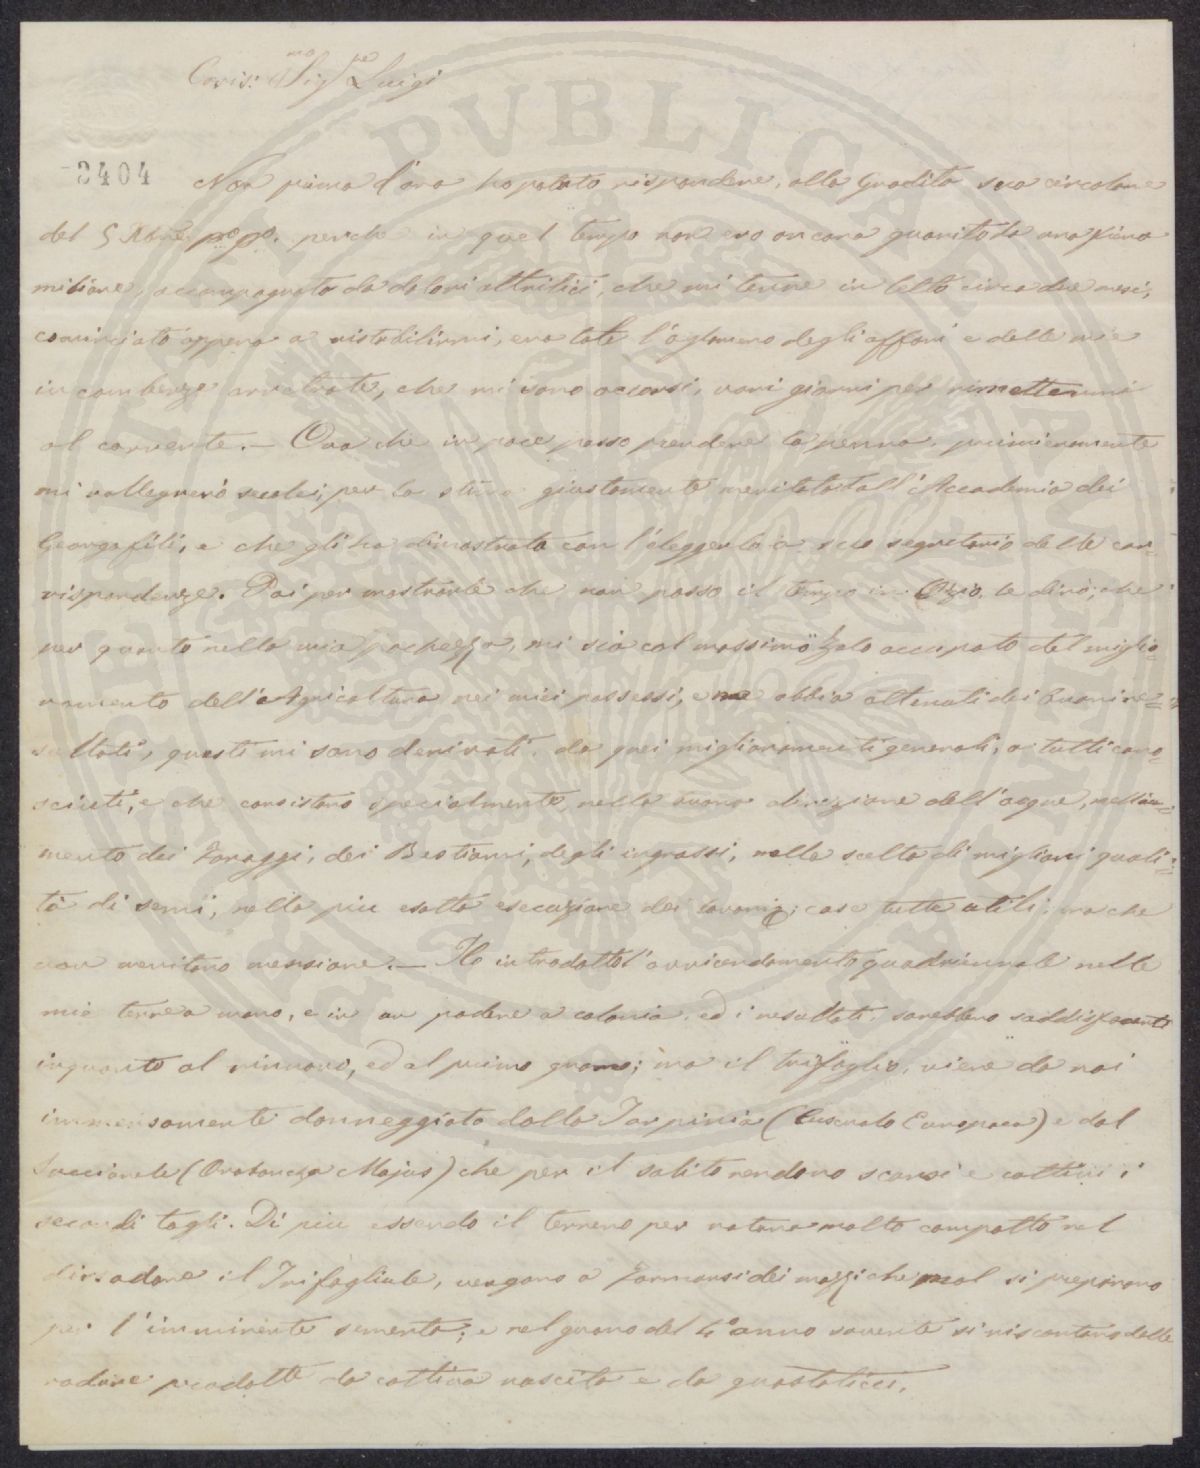 Caris:mo Sigre Luigi
3404
Non prima d'ora ho potuto rispondere, alla Gradita sua circolare
del 5 Abre ppo. perche in quel tempo non ero ancora guarito da una fiera
miliare, accompagnata da dolori attritici, che mi tenne in letto circa due mesi,
cominciato appena a ristabilirmi, era tale l'aglomero degli affari e delle mie
incombenze arretrate, che mi sono occorsi, vari giorni per rimettermi
al corrente. — Ora che in pace posso prendere la penna, primieramente
mi rallegrerò seco lei, per la stima giustamente meritata dall'Accademia dei
Georgofili, e che gli ha dimostrata con l'eleggerla a suo segretario delle cor-
rispondenze. Poi per mostrarle che non passo il tempo in Ozio, le dirò; che
per quanto nella mia pochezza, mi sia col massimo Zelo occupato del miglio-
ramento dell'Agricoltura nei miei possessi, e ne abbia ottenuti dei buoni re=
sultati, questi mi sono derivati da quei miglioramenti generali, a tutti cono=
sciuti, e che consistono specialmente nella buona direzione dell'acque, nell'au=
mento dei Foraggi, dei Bestiami, degli ingrassi, nella scelta di migliori quali=
tà di semi, nella piu esatta esecuzione dei lavori; cose tutte utili, ma che
non meritano menzione. — Ho introdotto l'avvicendamento quadriennale nelle
mie terre a mano, e in un podere a colonia, ed i resultati, sarebbero saddisfacenti
inquanto al rinnovo, ed al primo grano; ma il trifoglio, viene da noi
immensamente danneggiato dalla Tarpinia (Cuscuta Europaea) e dal
Succiamele (Orobanca Majus) che per il solito rendono scarsi e cattivi i
secondi tagli. Di piu essendo il terreno per natura molto compatto nel
dissodare il Trifogliale, vengono a formarsi dei mozzi che mal si preparano
per l'imminente sementa; e nel grano del 4° anno sovente si riscontrano delle
radure prodotte da cattiva nascita e da